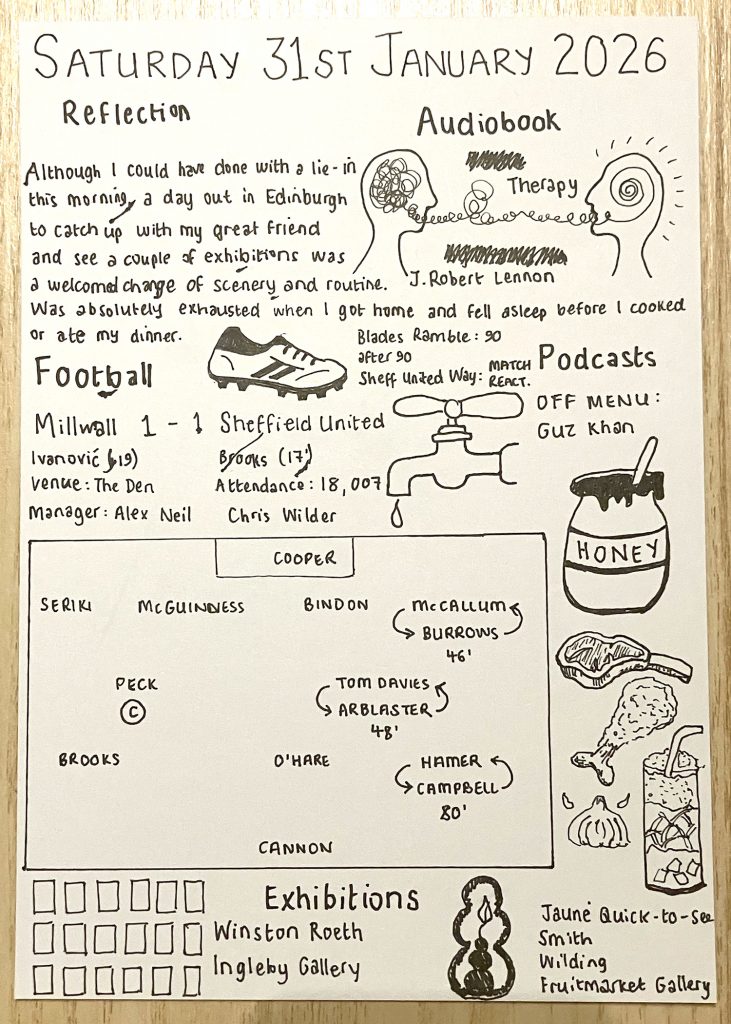 SATURDAY 31ST JANUARY 2026
Reflection
Although I could have done with a lie-in
this morning, a day out in Edinburgh
to catch up with my great friend
and see a couple of exhibitions was
a welcomed change of scenery and routine.
Was absolutely exhausted when I got home and fell asleep before I cooked
or ate my dinner.
Audiobook
Therapy
J. Robert Lennon
Football
Blades Ramble: 90
after 90
Sheff United Way: MATCH
REACT.
Podcasts
OFF MENU:
Guz Khan
Millwall 1 - 1 Sheffield United
Ivanović (19) Brooks (17')
Venue: The Den Attendance: 18,007
Manager: Alex Neil Chris Wilder
HONEY
COOPER
SERIKI McGUINNESS BINDON McCALLUM
BURROWS
46'
PECK TOM DAVIES
C ARBLASTER
48'
BROOKS O'HARE HAMER
CAMPBELL
80'
CANNON
Exhibitions
Winston Roeth
Ingleby Gallery
Jaune Quick-to-See
Smith
Wilding
Fruitmarket Gallery